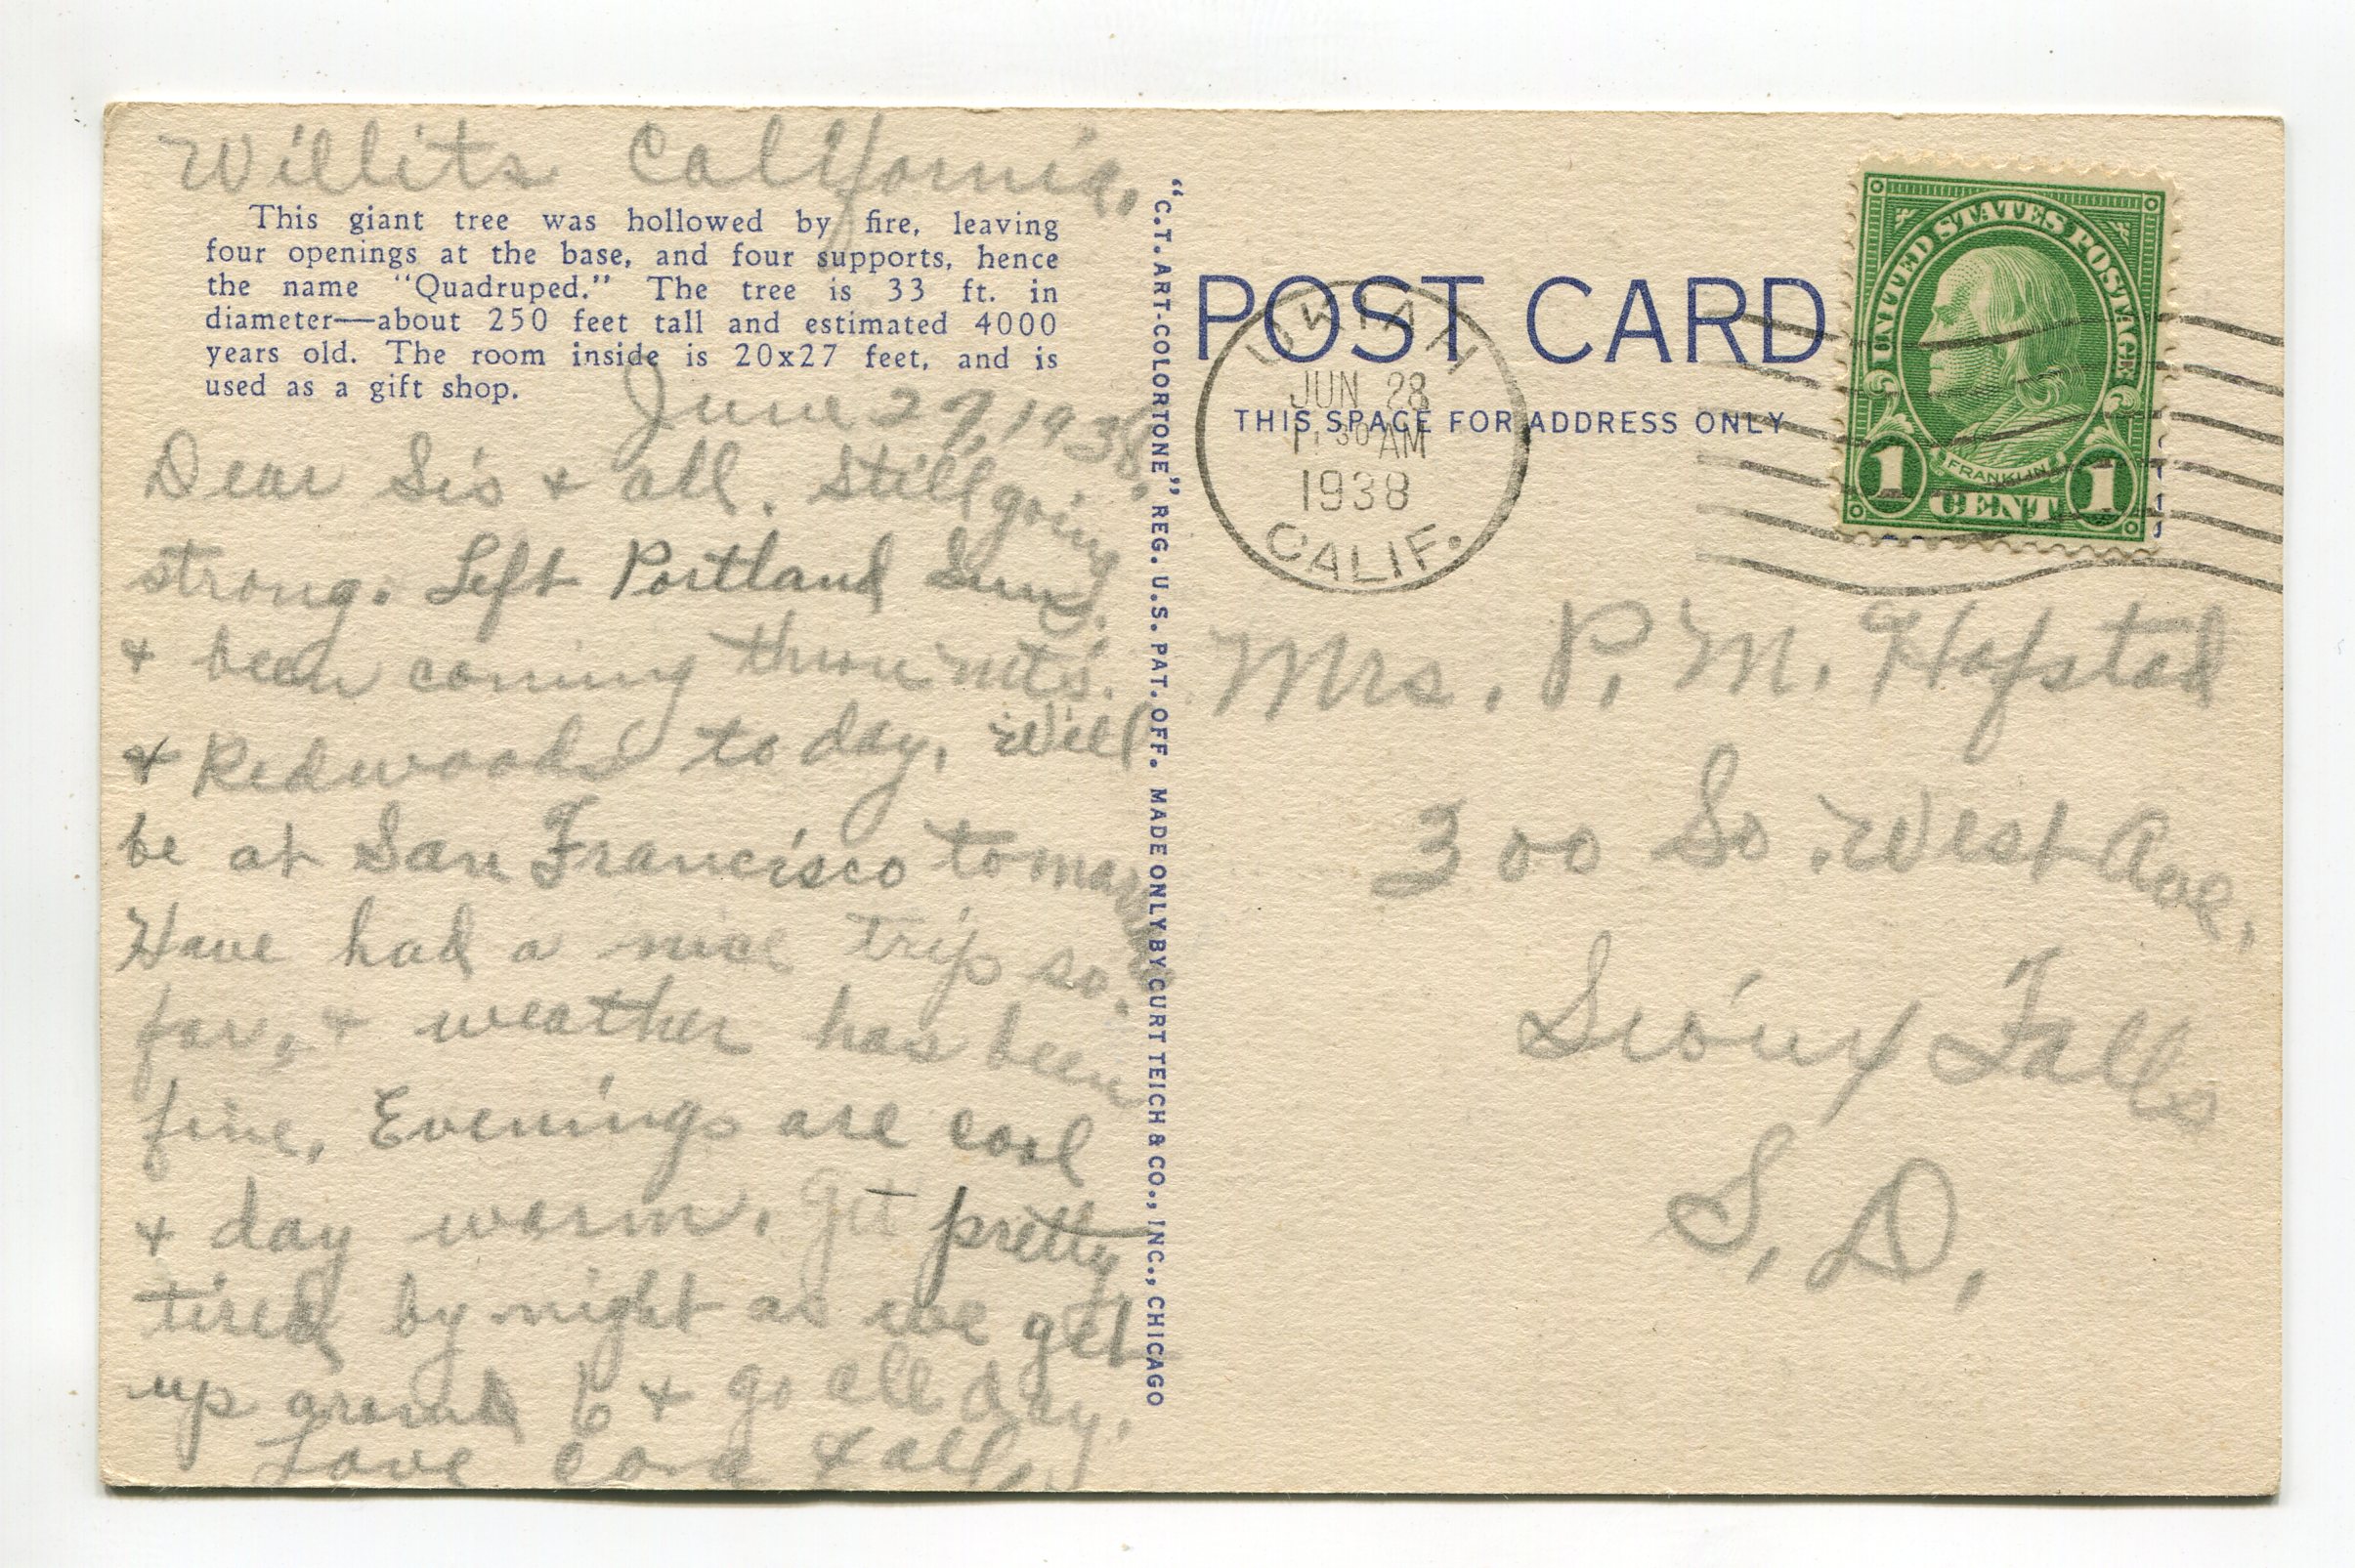 Willits California.
This giant tree was hollowed by fire, leaving
four openings at the base, and four supports, hence
the name "Quadruped." The tree is 33 ft. in
diameter—about 250 feet tall and estimated 4000
years old. The room inside is 20x27 feet, and is
used as a gift shop.
June 27, 1938.
Dear Sis + all. Still going
strong. Left Portland Sun.
+ been coming thru mt's.
+ Redwoods to day. Will
be at San Francisco tomorrow
Have had a nice trip so.
far, + weather has been
fine. Evenings are cool
+ day warm. Get pretty
tired by night as we get
up around 6 + go all day.
Love Cora + all.
"C.T. ART-COLORTONE" REG. U.S. PAT. OFF. MADE ONLY BY CURT TEICH & CO., INC., CHICAGO
POST CARD
THIS SPACE FOR ADDRESS ONLY
UKIAH
JUN 28
30 AM
1938
CALIF.
UNITED STATES POSTAGE
FRANKLIN
1 CENT 1
Mrs. P. M. Hofstad
300 So. West Ave,
Sioux Falls
S. D.